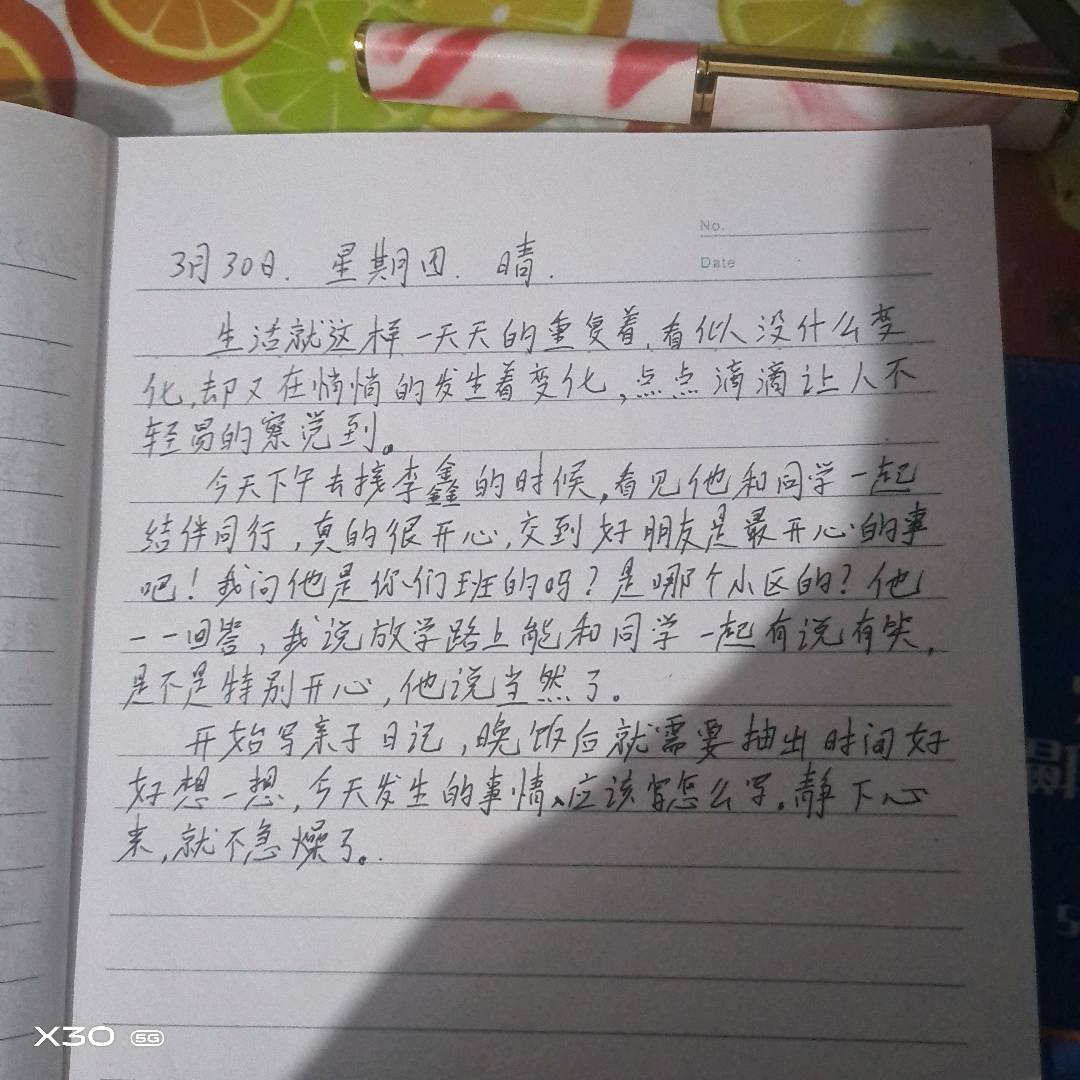 No.
Date
3月30日. 星期四. 晴.
生活就这样一天天的重复着,看似没什么变
化,却又在悄悄的发生着变化,点点滴滴让人不
轻易的察觉到。
今天下午去接李鑫鑫的时候,看见他和同学一起
结伴同行,真的很开心,交到好朋友是最开心的事
吧!我问他是你们班的吗?是哪个小区的?他
一一回答,我说放学路上能和同学一起有说有笑,
是不是特别开心,他说当然了。
开始写亲子日记,晚饭后就需要抽出时间好
好想一想,今天发生的事情、应该写怎么写。静下心
来,就不急燥了。
X30 5G